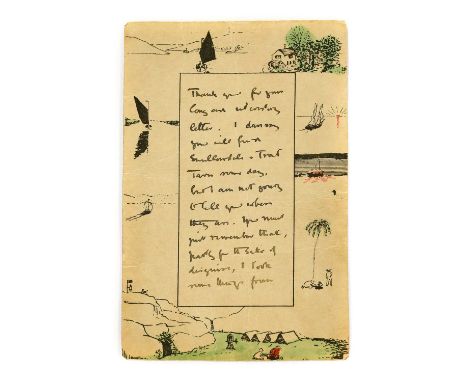 Thank you for your
long and interesting
letter. I daresay
you will find
Swallowdale & Trout
Tarn some day,
but I am not going
to tell you where
they are. You must
just remember that,
partly for sake of
disguise, I took
some things from